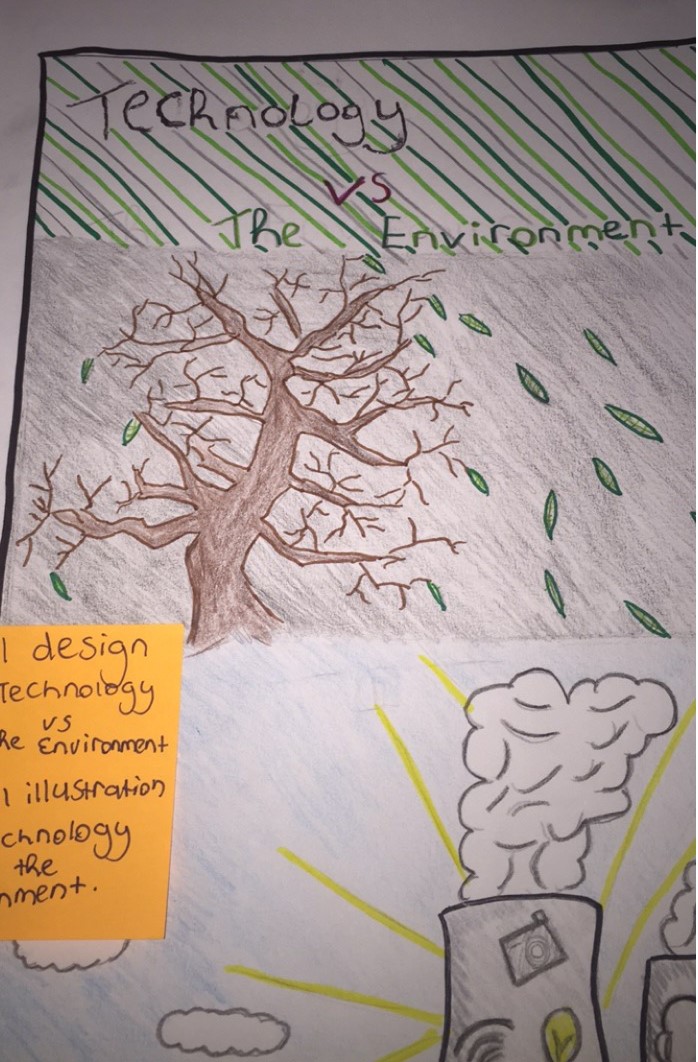 Technology
vs
The Environment
design
Technology
vs
Environment
illustration
the